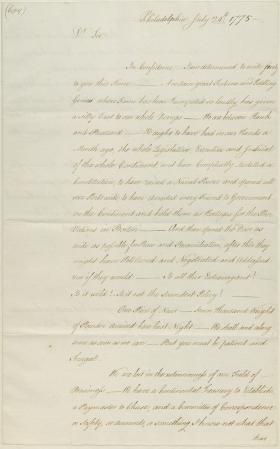 (Copy)
Philadelphia July 24th 1775
Dr Sir
In Confidence, I am determined to write freely
to you this Time. — A certain great Fortune and Piddling
Genius whose Fame has been Trumpeted so loudly, has given
a silly Cast to our whole Doings — We are between Hawk
and Buzzard — We ought to have had in our Hands a
Month ago, the whole Legislative, Executive and Judicial
of the whole Continent and have Compleatly modelled a
Constitution, to have raised a Naval Power and opened all
our Ports wide, to have arrested every Friend to Government
on the Continent and held them as Hostages for the Poor
Victims in Boston — And then opened the Door as
wide as possible for Peace and Reconciliation, after this they
might have Petitioned and Negotiated and Addressed
&c if they would — Is all this Extravagant? —
Is it wild? — Is it not the Soundest Policy? —
One Piece of News — Seven Thousand Weight
of Powder arrived here last Night — We shall send along
some as soon as we can — But you must be patient and
Frugal.
We are lost in the extensiveness of our Field of
Business — We have a Continental Treasury to Establish,
a Paymaster to Choose, and a Committee of Correspondence
or Safety, or Accounts, or something I know not what that
has